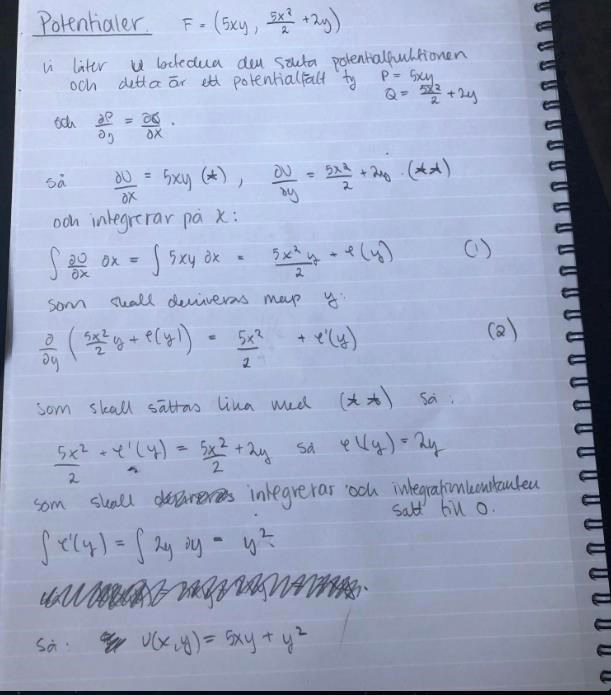 Potentialer. F = (5xy, 5x²/2 + 2y)
Vi låter U beteckna den sökta potentialfunktionen
och detta är ett potentialfält ty P = 5xy
Q = 5x²/2 + 2y
och ∂P/∂y = ∂Q/∂x.
så ∂U/∂x = 5xy (*), ∂U/∂y = 5x²/2 + 2y. (**)
och integrerar på x:
∫ ∂U/∂x ∂x = ∫ 5xy ∂x = 5x²/2 y + φ(y) (1)
som skall deriveras map y:
∂/∂y (5x²/2 y + φ(y)) = 5x²/2 + φ'(y) (2)
som skall sättas lika med (**) så:
5x²/2 + φ'(y) = 5x²/2 + 2y så φ'(y) = 2y
som skall integreras och integrationkonstanten
satt till 0.
∫ φ'(y) = ∫ 2y ∂y = y².
Så: U(x,y) = 5xy + y²